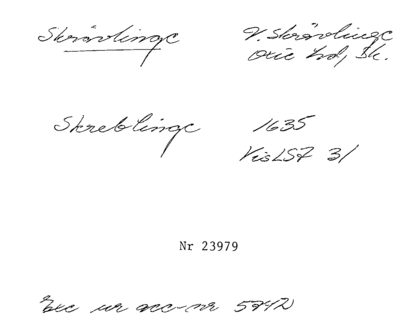 Skrävlinge V. Skrävlinge
Oxie hd, Sk.
Skreblinge 1635
VisLSF 31
Nr 23979
Exc ur acc-nr 5742